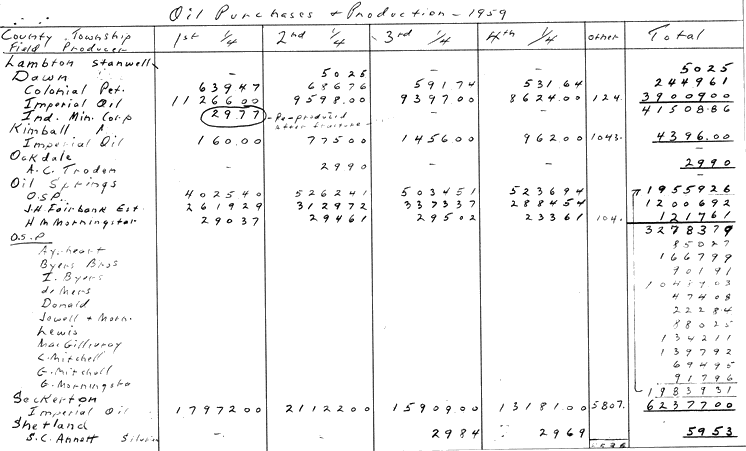 Oil Purchases + Production - 1959
County Township 1st 1/4 2nd 1/4 3rd 1/4 4th 1/4 other Total
Field Producer
Lambton Stanwell - 5025 - - 5025
Dawn
Colonial Pet. 63947 68676 59174 531.64 244961
Imperial Oil 11266.00 9598.00 9397.00 8624.00 124. 3900900
Ind. Min. Corp 29.77 - Re-produced after fracture - - - 4150886
Kimball
Imperial Oil 160.00 77500 145600 962.00 1043. 4396.00
Oakdale
A.C. Troden - 2990 - - 2990
Oil Springs
O.S.P. 402540 526241 503451 523694 1955926
J.H. Fairbank Est. 261929 312972 337337 288454 1200692
H M Morningstar 29037 29461 29502 23361 104. 121761
3278379
O.S.P
Ayrheart 85027
Byers Bros 166799
I. Byers 90191
de Mers
Donald 47408
Jowell + Morn. 22284
Lewis 88025
MacGillivray 134211
C. Mitchell 139792
G. Mitchell 69495
G. Morningsta 91796
1983931
Seckerton
Imperial Oil 1797200 2112200 1590900 13181.00 5807. 6237700
Shetland
S.C. Annett - - 2984 2969 5953